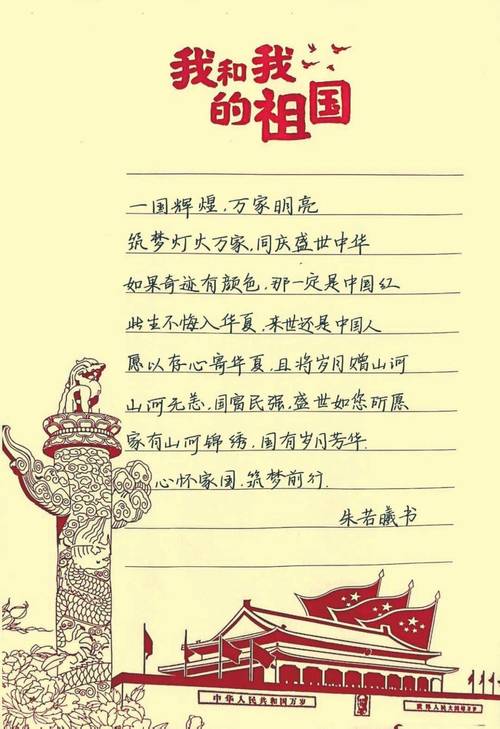 我和我
的祖国
一国辉煌，万家明亮
筑梦灯火万家，同庆盛世中华
如果奇迹有颜色，那一定是中国红
此生不悔入华夏，来世还是中国人
愿以存心寄华夏，且将岁月赠山河
山河无恙，国富民强，盛世如您所愿
家有山河锦绣，国有岁月芳华
心怀家国，筑梦前行
朱若曦书
中华人民共和国万岁